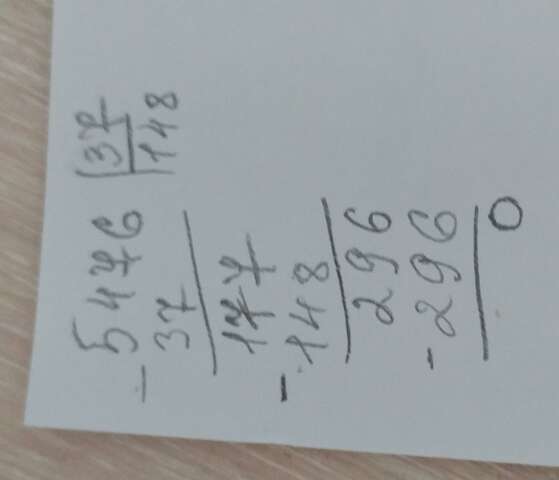 - 5476 | 37
37 148
177
- 148
296
- 296
0